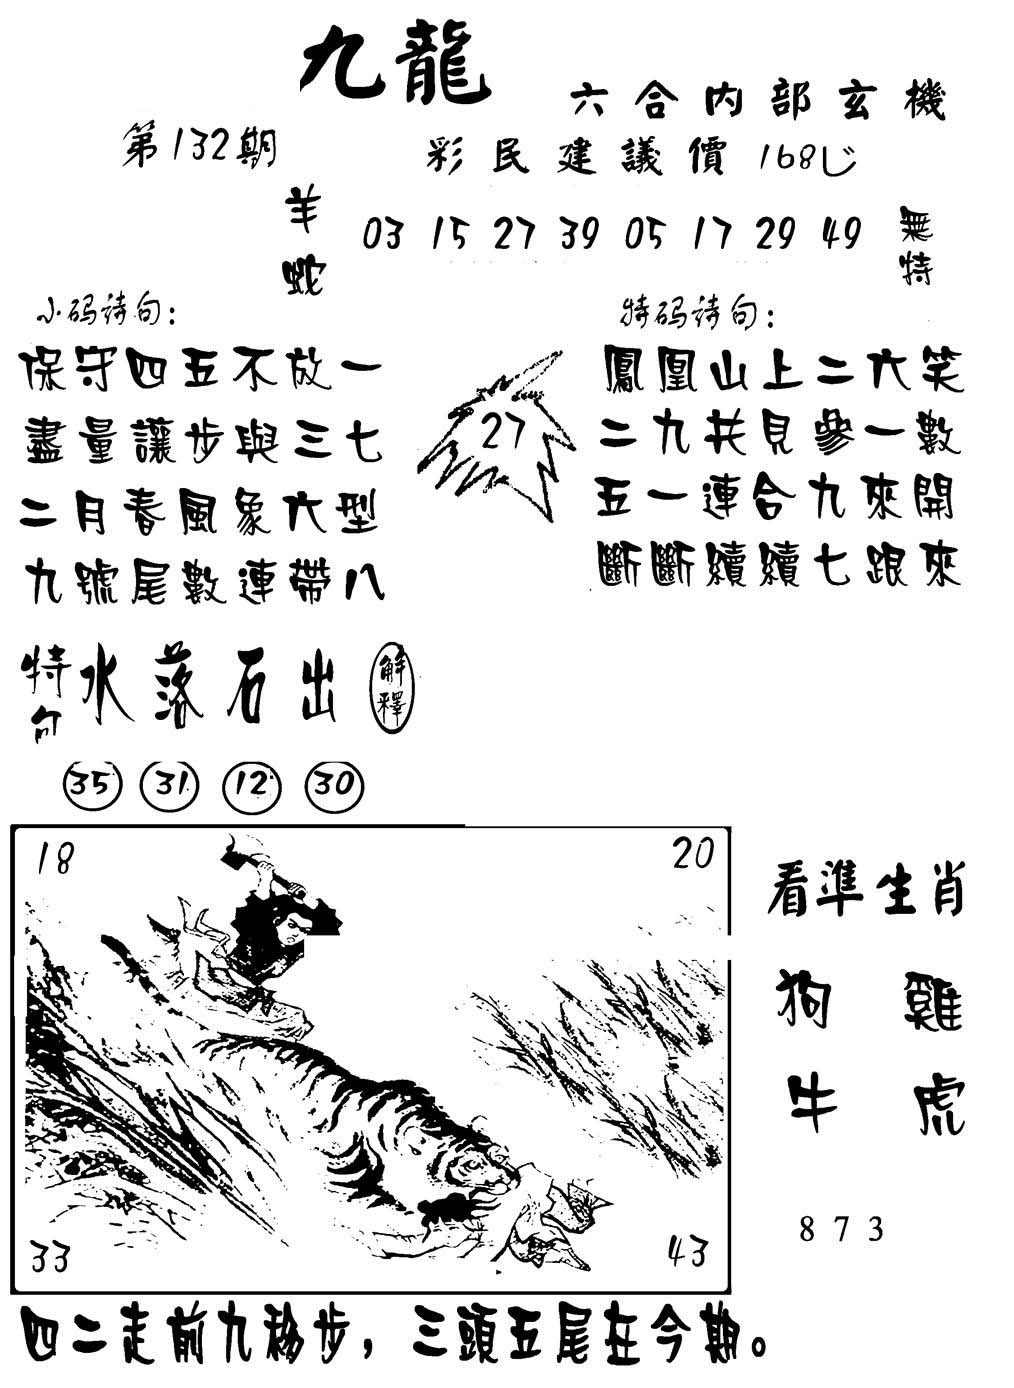 九龍
六合内部玄機
第132期
彩民建議價168
羊蛇
03 15 27 39 05 17 29 49
無特
小码诗句:
保守四五不放一
盡量讓步與三七
二月春風象六型
九號尾數連帶八
27
特码诗句:
鳳凰山上二六笑
二九共見參一數
五一連合九來開
斷斷續續七跟來
特
水落石出
解釋
35 31 12 30
18
20
33
43
看準生肖
狗 雞
牛 虎
873
四二走前九移步，三頭五尾在今期。